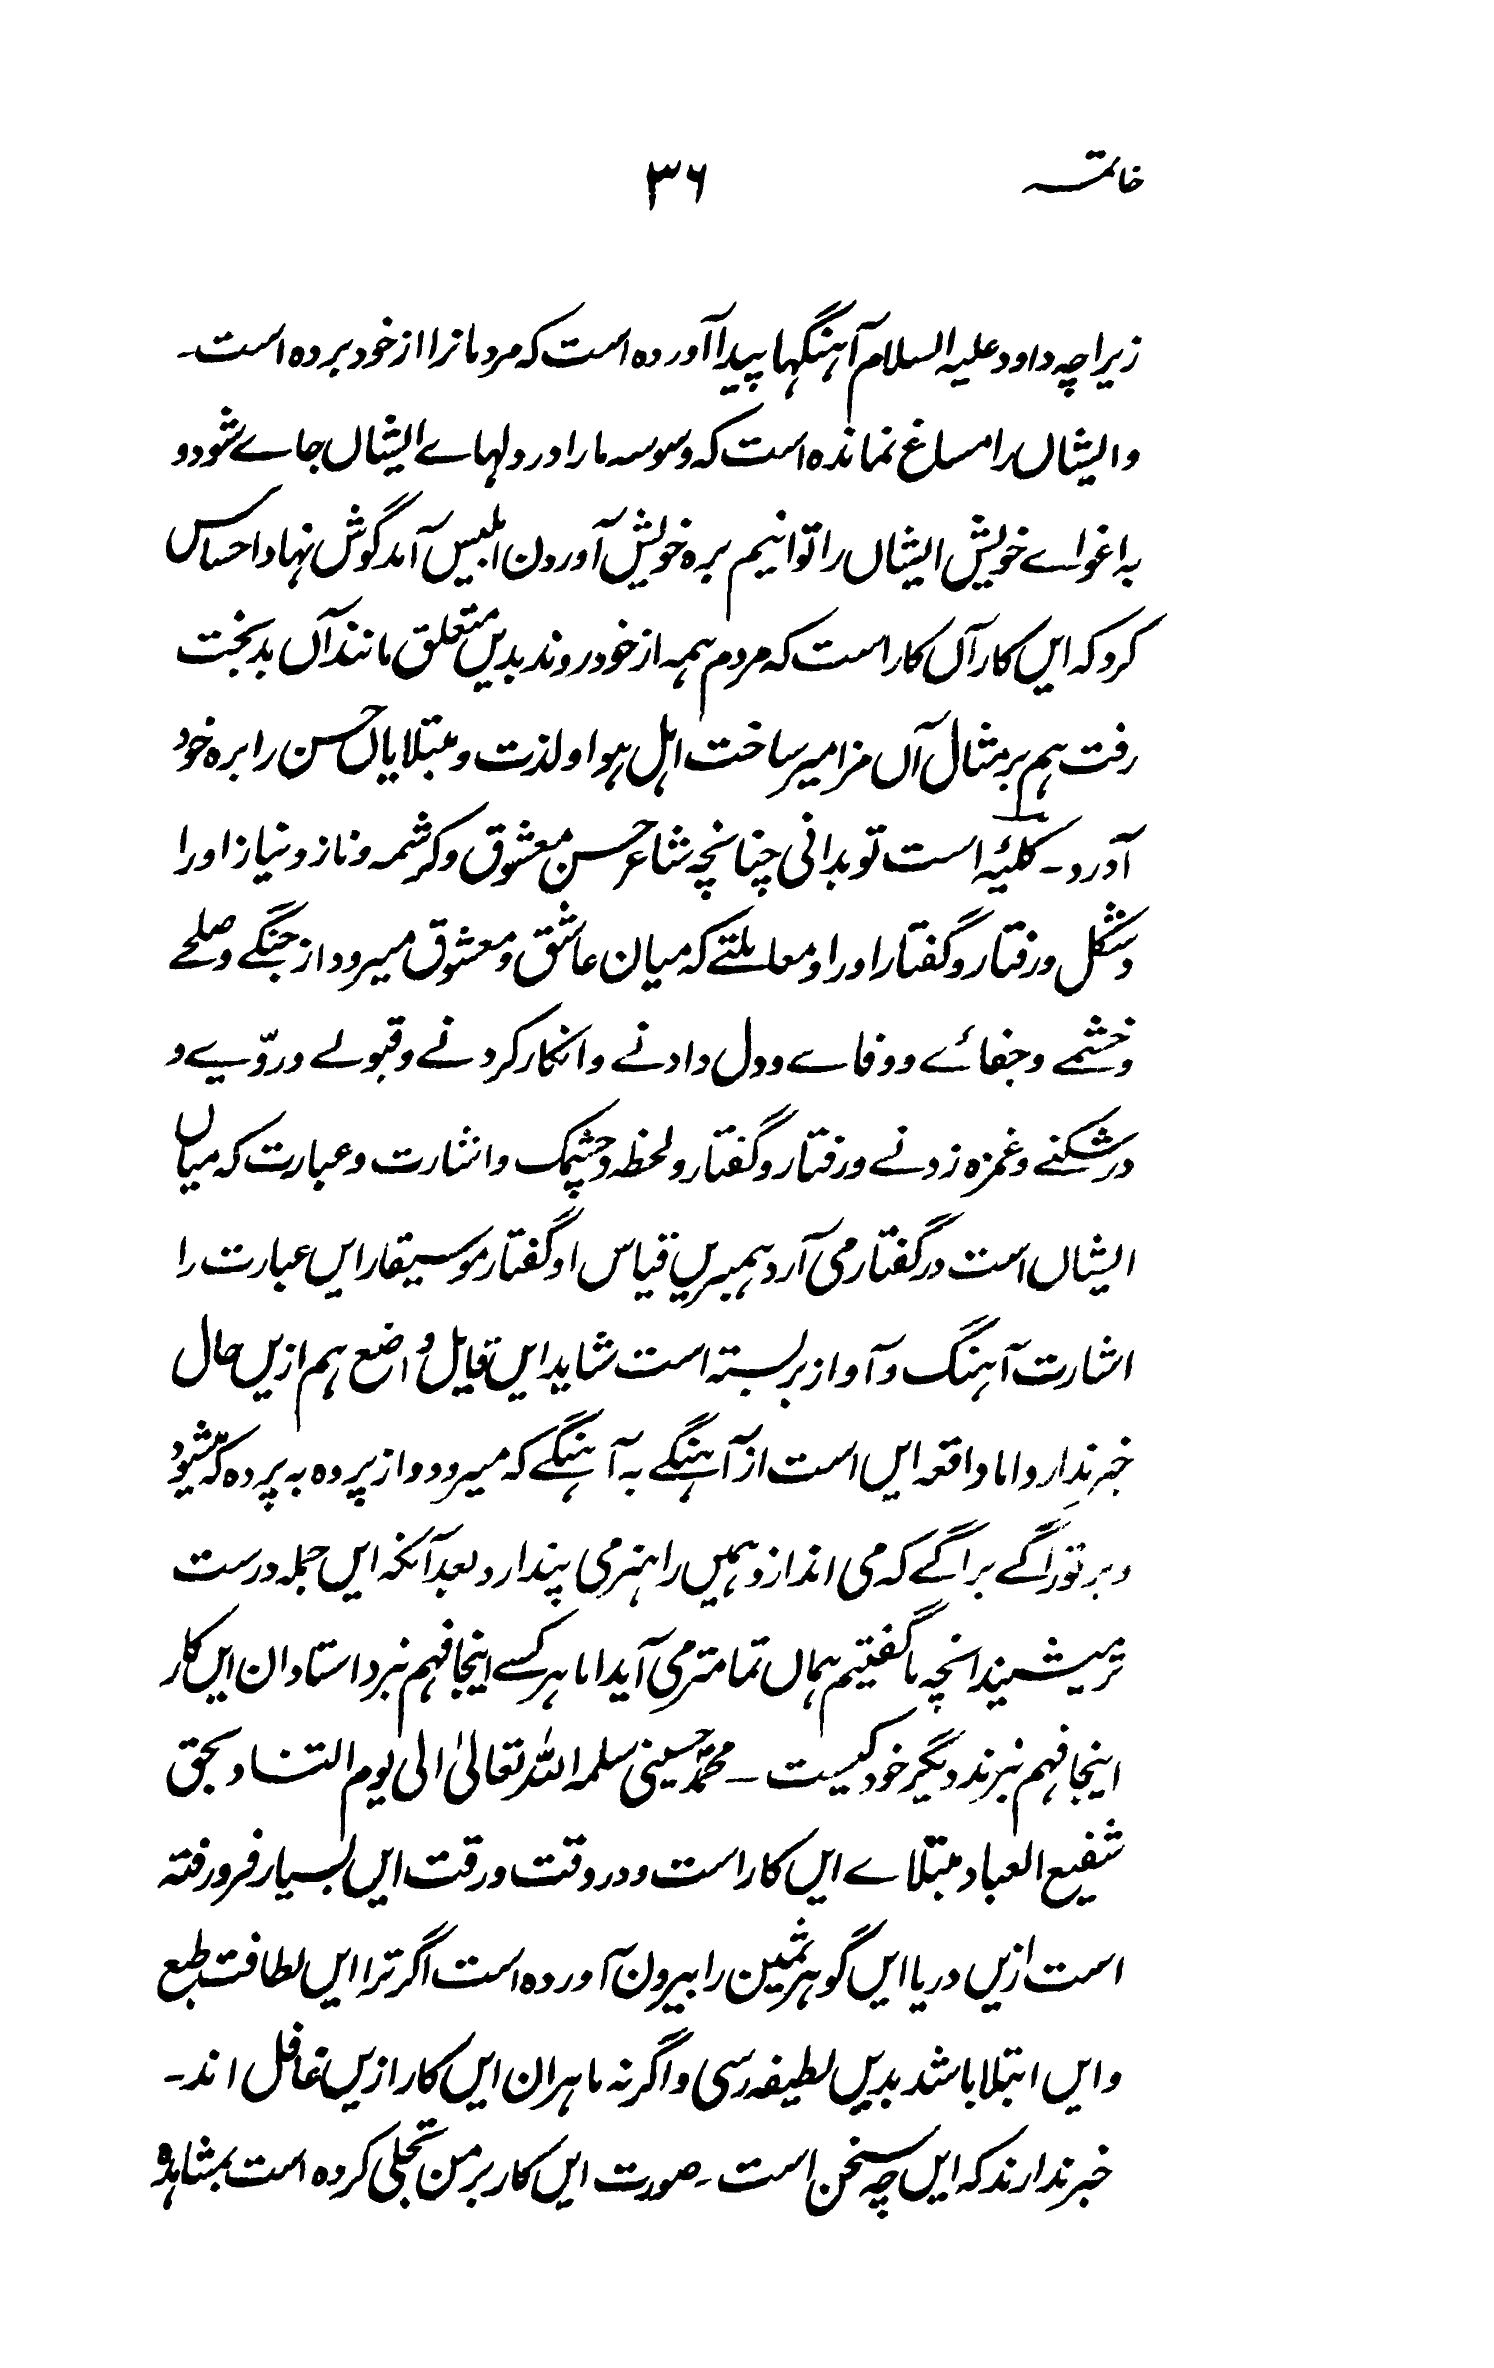 خاتمہ ۳۶
زیراچہ داود علیہ السلام آہنگہا پیدا آوردہ است کہ مردمانرا از خود بردہ است۔
و ایشاں را مساغ نماندہ است کہ وسوسہ مارا در دلہاے ایشاں جاے شود و
بہ اغواے خویش ایشاں را توانیم برہ خویش آوردن ابلیس آمد گوش نہاد احساس
کرد کہ ایں کار آں کار است کہ مردم ہمہ از خود روند بدیں متعلق مانند آں بدبخت
رفت ہم بر مثال آں مزامیر ساخت اہل ہوا و لذت و مبتلایاں حسن را برہ خود
آدرد۔ کلیّہ است تو بدانی چنانچہ شاعر حسن معشوق و کرشمہ و ناز و نیاز او را
و شکل و رفتار و گفتار او را و معاملتے کہ میان عاشق و معشوق میرود از جنگے و صلحے
و خشمے و جفائے و وفاے و دل دادنے و انکار کردنے و قبولے و ردّیے و
در شکنے و غمزہ زدنے و رفتار و گفتار و لحظہ و چشمک و اشارت و عبارت کہ میاں
ایشاں است در گفتار می آرد ہمبریں قیاس او گفتار موسیقار ایں عبارت را
اشارت آہنگ و آواز بر بستہ است شاید ایں قایل و اضع ہم ازیں حال
خبر ندارد اما واقعہ ایں است از آہنگے بہ آہنگے کہ میرود و از پردہ بہ پردہ کہ میشود
و بر تو راگے براگے کہ می اندازد ہمیں را ہنر می پندارد بعد آنکہ ایں جملہ درست
تر بیشیند انچہ ما گفتیم ہماں تمامتر می آید اما ہر کسے اینجا فہم نبرد استادان ایں کار
اینجا فہم نبرند دیگر خود کیست ۔ محمد حسینی سلمہ اللہ تعالیٰ الی یوم التناد بحق
شفیع العباد مبتلاے ایں کار است و در وقت و رقت ایں بسیار فرو رفتہ
است ازیں دریا ایں گوہر ثمین را بیرون آوردہ است اگر ترا ایں لطافت طبع
و ایں ابتلا باشد بدیں لطیفہ رسی و اگر نہ ماہران ایں کار ازیں غافل اند۔
خبر ندارند کہ ایں چہ سخن است۔ صورت ایں کار بر من تجلی کردہ است بمشاہدہ